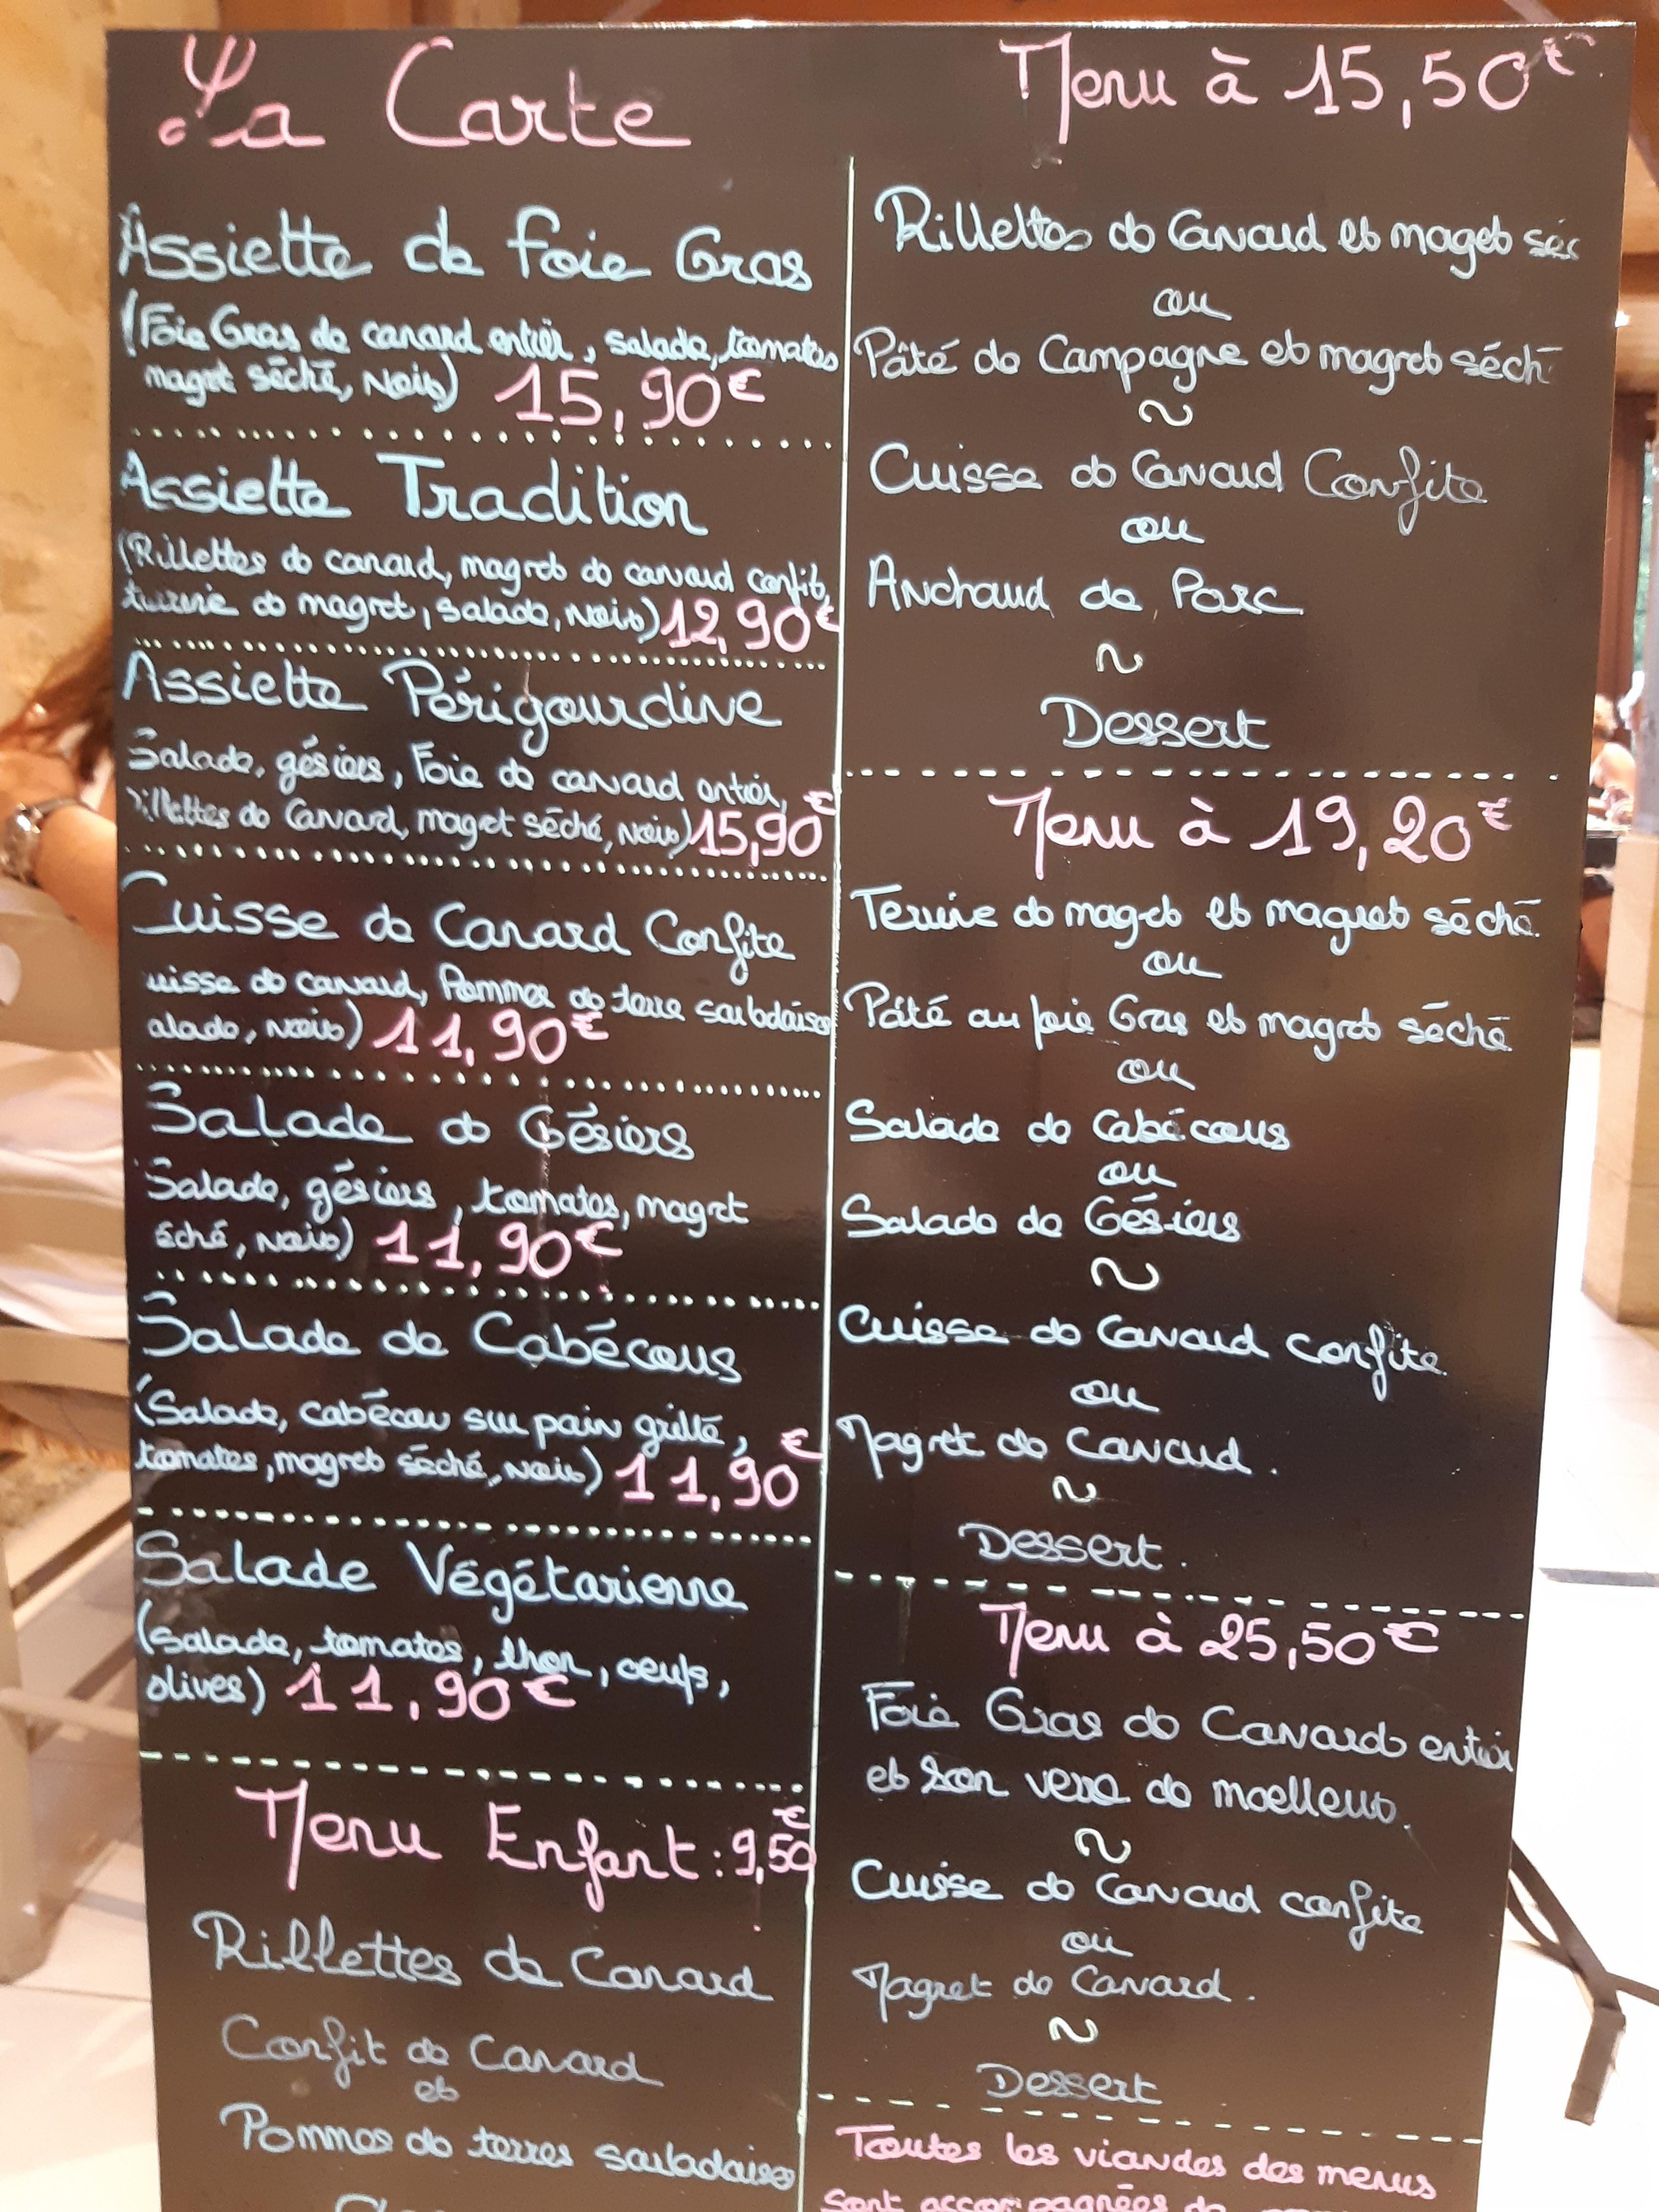 La Carte
Assiette de Foie Gras
(Foie Gras de canard entier, salade, tomates
magret séché, Noix) 15,90€
Assiette Tradition
(Rillettes de canard, magret de canard confit,
terrine de magret, salade, Noix) 12,90€
Assiette Périgourdine
Salade, gésiers, Foie de canard entier,
rillettes de Canard, magret séché, Noix) 15,90€
Cuisse de Canard Confite
uisse de canard, Pommes de terre sarladaises
alade, Noix) 11,90€
Salade de Gésiers
Salade, gésiers, tomates, magret
éché, Noix) 11,90€
Salade de Cabécous
(Salade, cabécou sur pain grillé,
tomates, magret séché, Noix) 11,90€
Salade Végétarienne
(Salade, tomates, thon, oeufs,
olives) 11,90€
Menu Enfant : 9,50€
Rillettes de Canard
Confit de Canard
et
Pommes de terres sarladaises
Menu à 15,50€
Rillettes de Canard et magret séc
ou
Pâté de Campagne et magret séch
~
Cuisse de Canard Confite
ou
Anchaud de Porc
~
Dessert
Menu à 19,20€
Terrine de magret et magret séché
ou
Pâté au foie Gras et magret séché
ou
Salade de Cabécous
ou
Salade de Gésiers
~
Cuisse de Canard confite
ou
Magret de Canard.
~
Dessert.
Menu à 25,50€
Foie Gras de Canard entier
et son verre de moelleux.
~
Cuisse de Canard confite
ou
Magret de Canard.
~
Dessert
Toutes les viandes des menus
sont accompagnées de